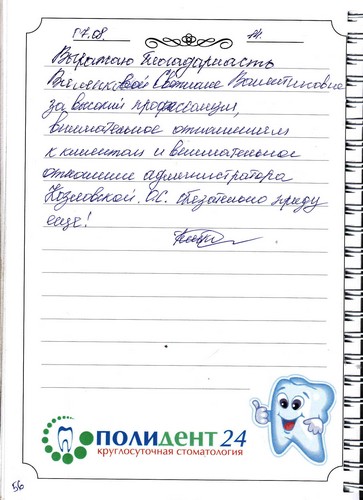 17.08. 14.
Выражаю благодарность
Светлане Валентиновне
за высокий профессионализм,
внимательное отношением
к клиентам и внимательное
отношение администратора
Козловской. О.С. Обязательно приду
еще!
ПОЛИДЕНТ 24
круглосуточная стоматология